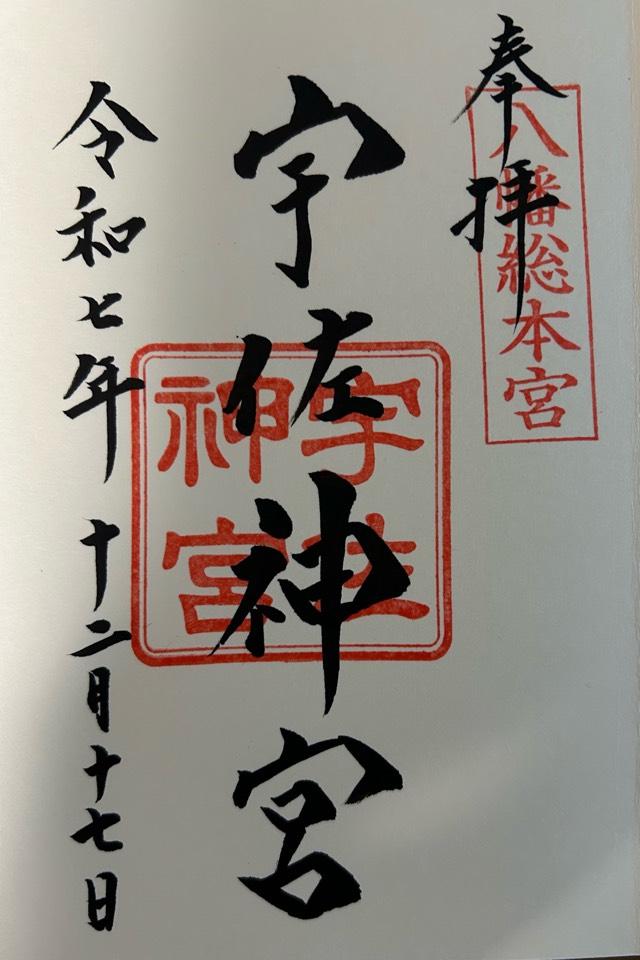 奉拝
八幡総本宮
宇佐神宮
宇佐神宮
令和七年 十二月十七日